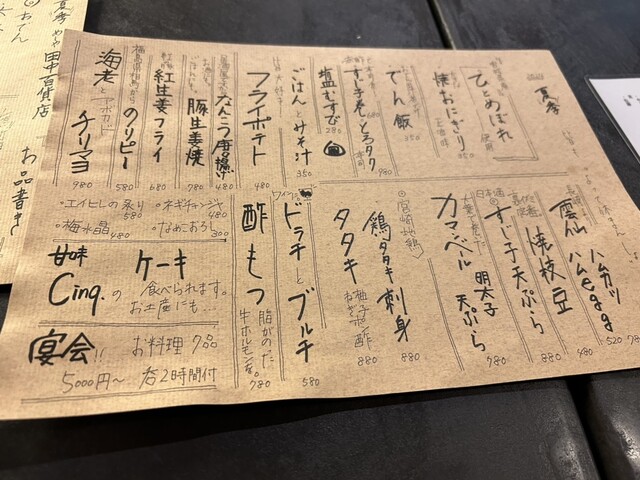 夏季
ひとめぼれ
使用
焼おにぎり
350
でん飯
すじ子巻
とろタク
980
塩むすび
280
ごはんとみそ汁
350
フライポテト
480
なんこつ唐揚げ
480
豚生姜焼
780
紅生姜フライ
680
のりピー
580
海老と
アボカド
チリマヨ
980
雲仙
ハムカツ
520
ハムegg
780
焼枝豆
480
すじ子天ぷら
880
カマンベール
明太子
天ぷら
780
宮崎地鶏
鶏タタキ
刺身
880
タタキ
柚子ポン酢
880
ドラチとブルチ
580
酢もつ
脂がのった
牛ホルモンを。
780
・エイヒレの炙り
580
・ネギチャンジャ
480
・梅水晶
480
・なめこおろし
300
甘味
Cinq.の
ケーキ
食べられます。
お土産にも…
宴会!!
お料理7品
5000円〜
呑2時間付
夏季
田中百貨店
お品書き
おでん